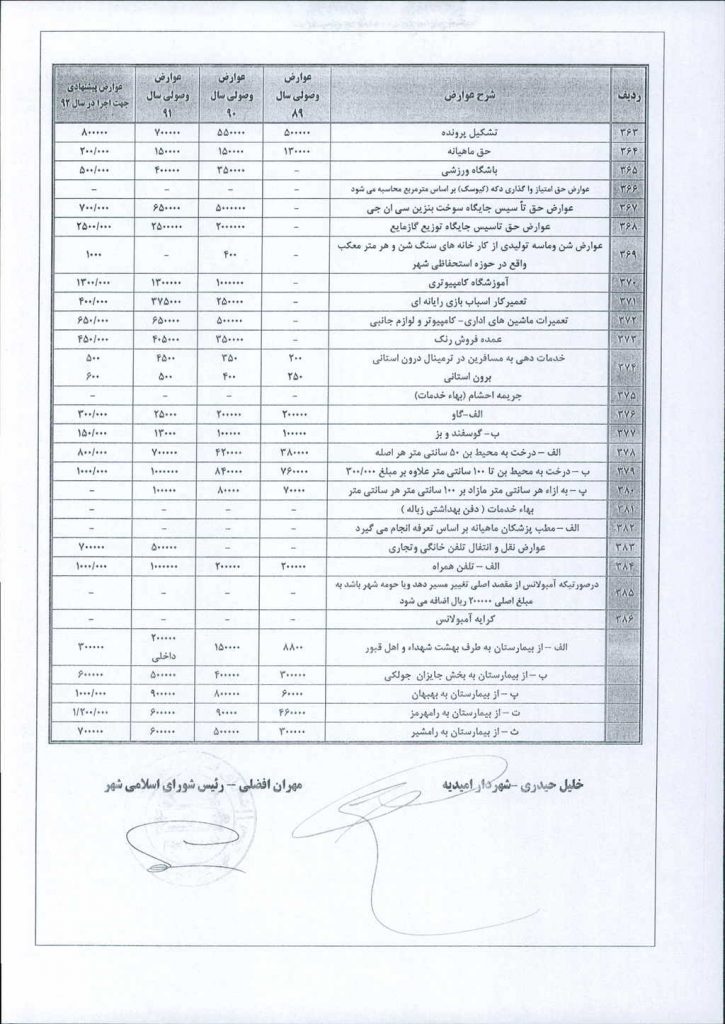 ردیف | شرح عوارض | عوارض وصولی سال ۸۹ | عوارض وصولی سال ۹۰ | عوارض وصولی سال ۹۱ | عوارض پیشنهادی جهت اجرا در سال ۹۲
۳۶۳ | تشکیل پرونده | ۵۰۰۰۰۰ | ۵۵۰۰۰۰ | ۷۰۰۰۰۰ | ۸۰۰۰۰۰
۳۶۴ | حق ماهیانه | ۱۳۰۰۰۰ | ۱۵۰۰۰۰ | ۱۵۰۰۰۰ | ۲۰۰/۰۰۰
۳۶۵ | باشگاه ورزشی | - | ۳۵۰۰۰۰ | ۴۰۰۰۰۰ | ۵۰۰/۰۰۰
۳۶۶ | عوارض حق امتیاز وا گذاری دکه (کیوسک) بر اساس مترمربع محاسبه می شود | - | - | - | -
۳۶۷ | عوارض حق تأ سیس جایگاه سوخت بنزین سی ان جی | - | ۵۰۰۰۰۰۰ | ۶۵۰۰۰۰ | ۷۰۰/۰۰۰
۳۶۸ | عوارض حق تاسیس جایگاه توزیع گازمایع | - | ۲۰۰۰۰۰۰ | ۲۵۰۰۰۰۰ | ۲۵۰۰/۰۰۰
۳۶۹ | عوارض شن وماسه تولیدی از کار خانه های سنگ شن و هر متر معکب
واقع در حوزه استحفاظی شهر | - | ۴۰۰ | - | ۱۰۰۰
۳۷۰ | آموزشگاه کامپیوتری | - | ۱۰۰۰۰۰۰ | ۱۳۰۰۰۰۰ | ۱۳۰۰/۰۰۰
۳۷۱ | تعمیرکار اسباب بازی رایانه ای | - | ۲۵۰۰۰۰ | ۳۷۵۰۰۰ | ۴۰۰/۰۰۰
۳۷۲ | تعمیرات ماشین های اداری- کامپیوتر و لوازم جانبی | - | ۵۰۰۰۰۰ | ۶۵۰۰۰۰ | ۶۵۰/۰۰۰
۳۷۳ | عمده فروش رنگ | - | ۳۵۰۰۰۰ | ۴۰۵۰۰۰ | ۴۵۰/۰۰۰
۳۷۴ | خدمات دهی به مسافرین در ترمینال درون استانی | ۲۰۰ | ۳۵۰ | ۴۵۰۰ | ۵۰۰
برون استانی | ۲۵۰ | ۴۰۰ | ۵۰۰ | ۶۰۰
۳۷۵ | جریمه احشام (بهاء خدمات) | - | - | - | -
۳۷۶ | الف-گاو | ۲۰۰۰۰۰ | ۲۰۰۰۰۰ | ۲۵۰۰۰ | ۳۰۰/۰۰۰
۳۷۷ | ب- گوسفند و بز | ۱۰۰۰۰۰ | ۱۰۰۰۰۰ | ۱۳۰۰۰ | ۱۵۰/۰۰۰
۳۷۸ | الف – درخت به محیط بن ۵۰ سانتی متر هر اصله | ۳۸۰۰۰۰ | ۴۲۰۰۰۰ | ۷۰۰۰۰۰ | ۸۰۰/۰۰۰
۳۷۹ | ب – درخت به محیط بن تا ۱۰۰ سانتی متر علاوه بر مبلغ ۳۰۰/۰۰۰ | ۷۶۰۰۰۰ | ۸۴۰۰۰۰ | ۱۰۰۰۰۰۰ | ۱۰۰۰/۰۰۰
۳۸۰ | پ – به ازاء هر سانتی متر مازاد بر ۱۰۰ سانتی متر هر سانتی متر | ۷۰۰۰۰ | ۸۰۰۰۰ | ۱۰۰۰۰۰ | -
۳۸۱ | بهاء خدمات ( دفن بهداشتی زباله ) | - | - | - | -
۳۸۲ | الف – مطب پزشکان ماهیانه بر اساس تعرفه انجام می گیرد | - | - | - | -
۳۸۳ | عوارض نقل و انتقال تلفن خانگی وتجاری | - | - | ۵۰۰۰۰۰ | ۷۰۰۰۰۰
۳۸۴ | الف – تلفن همراه | ۲۰۰۰۰۰ | ۲۰۰۰۰۰ | ۱۰۰۰۰۰۰ | ۱۰۰۰/۰۰۰
۳۸۵ | درصورتیکه آمبولانس از مقصد اصلی تغییر مسیر دهد وبا حومه شهر باشد به
مبلغ اصلی ۲۰۰۰۰۰ ریال اضافه می شود | - | - | - | -
۳۸۶ | کرایه آمبولانس | - | - | - | -
الف – از بیمارستان به طرف بهشت شهداء و اهل قبور | ۸۸۰۰ | ۱۵۰۰۰۰ | ۲۰۰۰۰۰ داخلی | ۳۰۰۰۰۰
ب – از بیمارستان به بخش جایزان جولکی | ۳۰۰۰۰۰ | ۴۰۰۰۰۰ | ۵۰۰۰۰۰ | ۶۰۰۰۰۰
پ – از بیمارستان به بهبهان | ۶۰۰۰۰ | ۸۰۰۰۰۰ | ۹۰۰۰۰۰ | ۱۰۰۰/۰۰۰
ت – از بیمارستان به رامهرمز | ۴۶۰۰۰۰ | ۹۰۰۰۰ | ۶۰۰۰۰۰ | ۱/۲۰۰/۰۰۰
ث – از بیمارستان به رامشیر | ۳۰۰۰۰۰ | ۵۰۰۰۰۰ | ۶۰۰۰۰۰ | ۷۰۰۰۰۰
خلیل حیدری -شهردار امیدیه
مهران افضلی – رئیس شورای اسلامی شهر